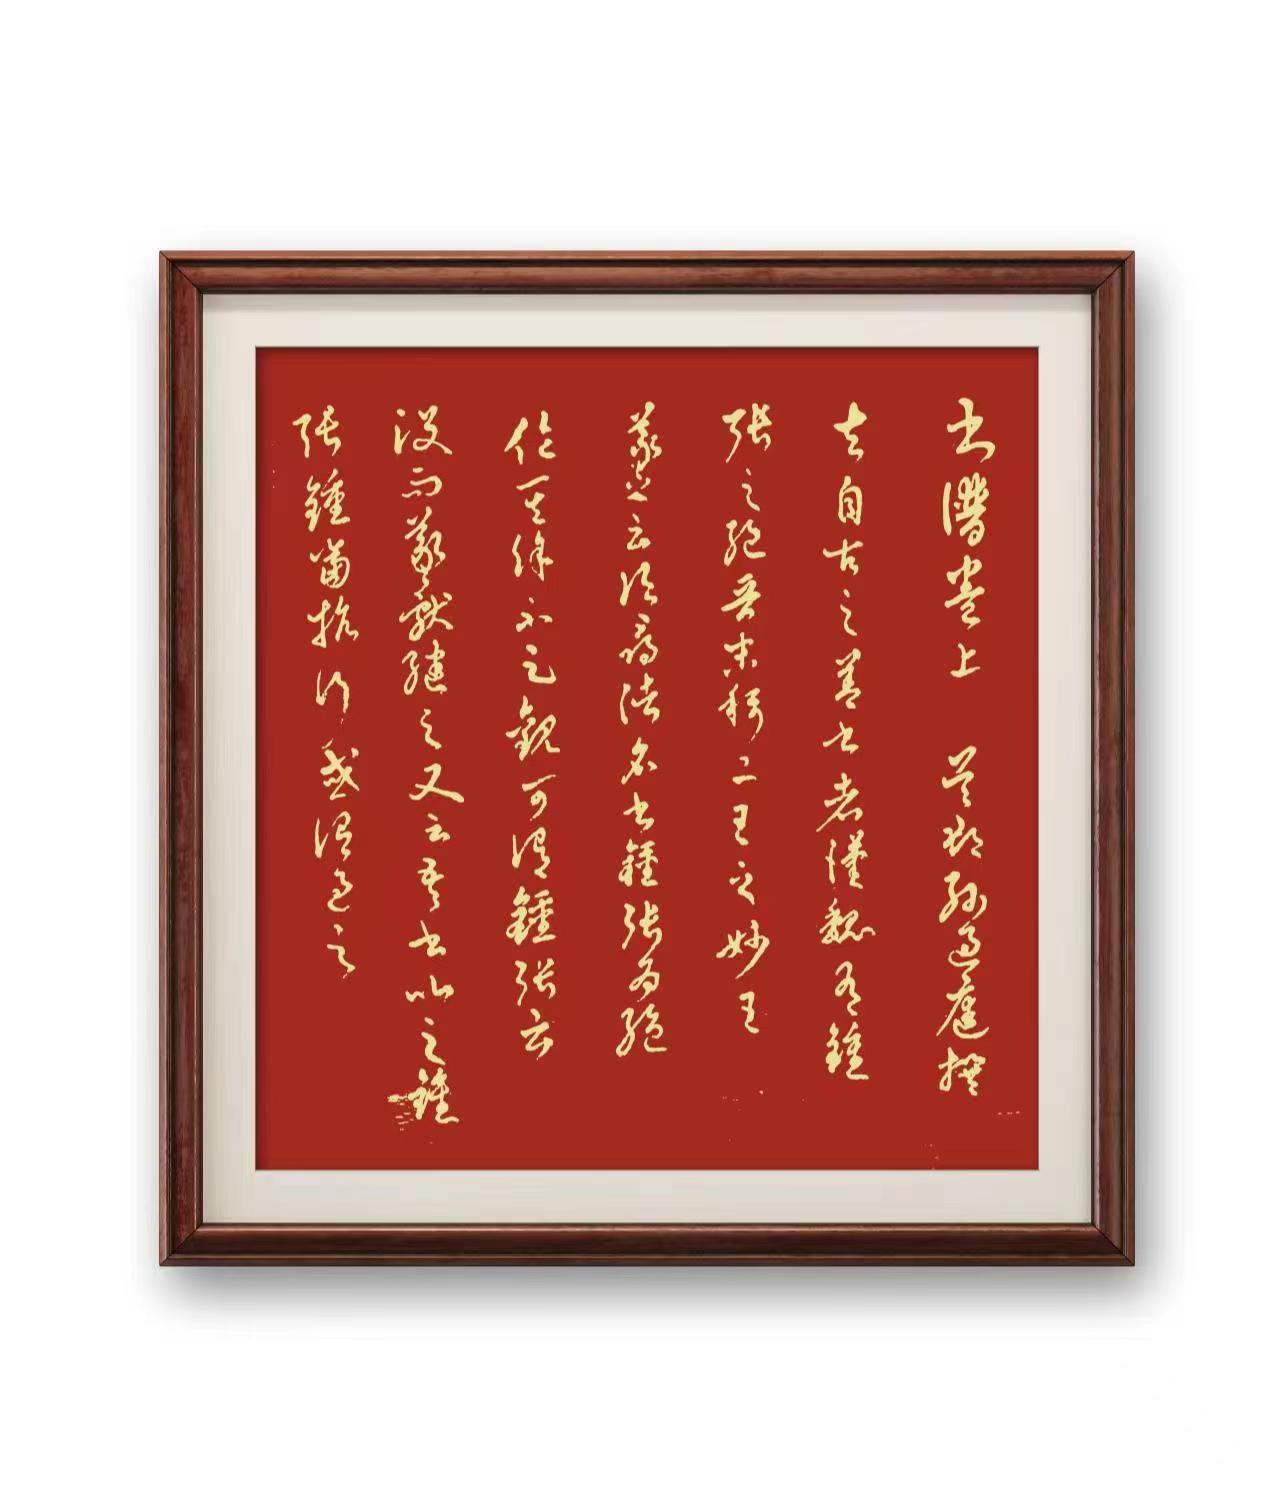 書譜卷上 吳郡孫過庭撰
夫自古之善書者漢魏有鍾
張之絕晉末稱二王之妙王
羲之云頃尋諸名書鍾張信為絕
倫其餘不足觀可謂鍾張云
沒而羲獻繼之又云吾書比之鍾
張鍾當抗行或謂過之